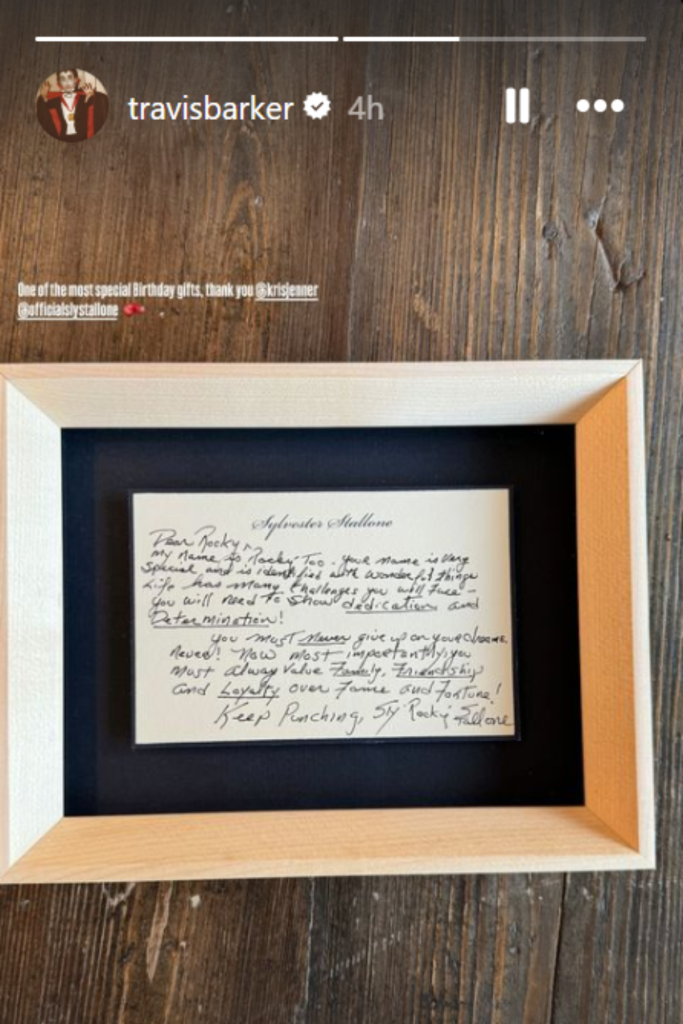 travisbarker 4h
One of the most special Birthday gifts, thank you @krisjenner
@officialslystallone
Sylvester Stallone
Dear Rocky,
my name is "Rocky" Too. your name is very
special and is identified with wonderful things
Life has many challenges you will face -
you will need to show dedication and
Determination!
you must never give up on your dreams
never! Now most importantly, you
must always value Family, Friendship
and Loyalty over Fame and Fortune!
Keep Punching, Sly "Rocky" Stallone